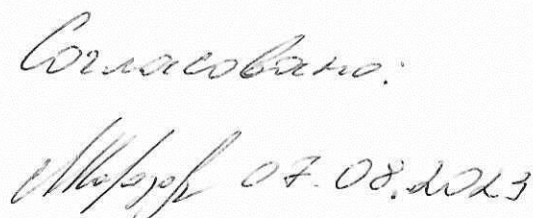 Согласовано:
07.08.2023